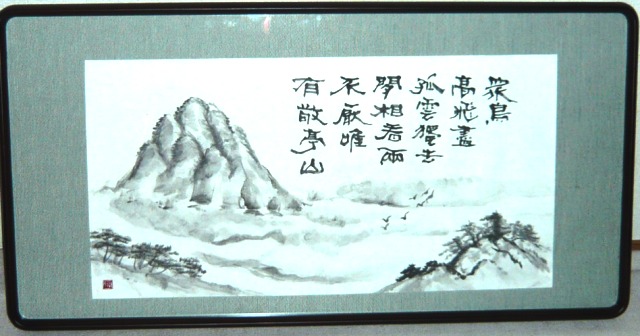 衆鳥
高飛盡
孤雲獨去
閒相看兩
不厭唯
有敬亭山